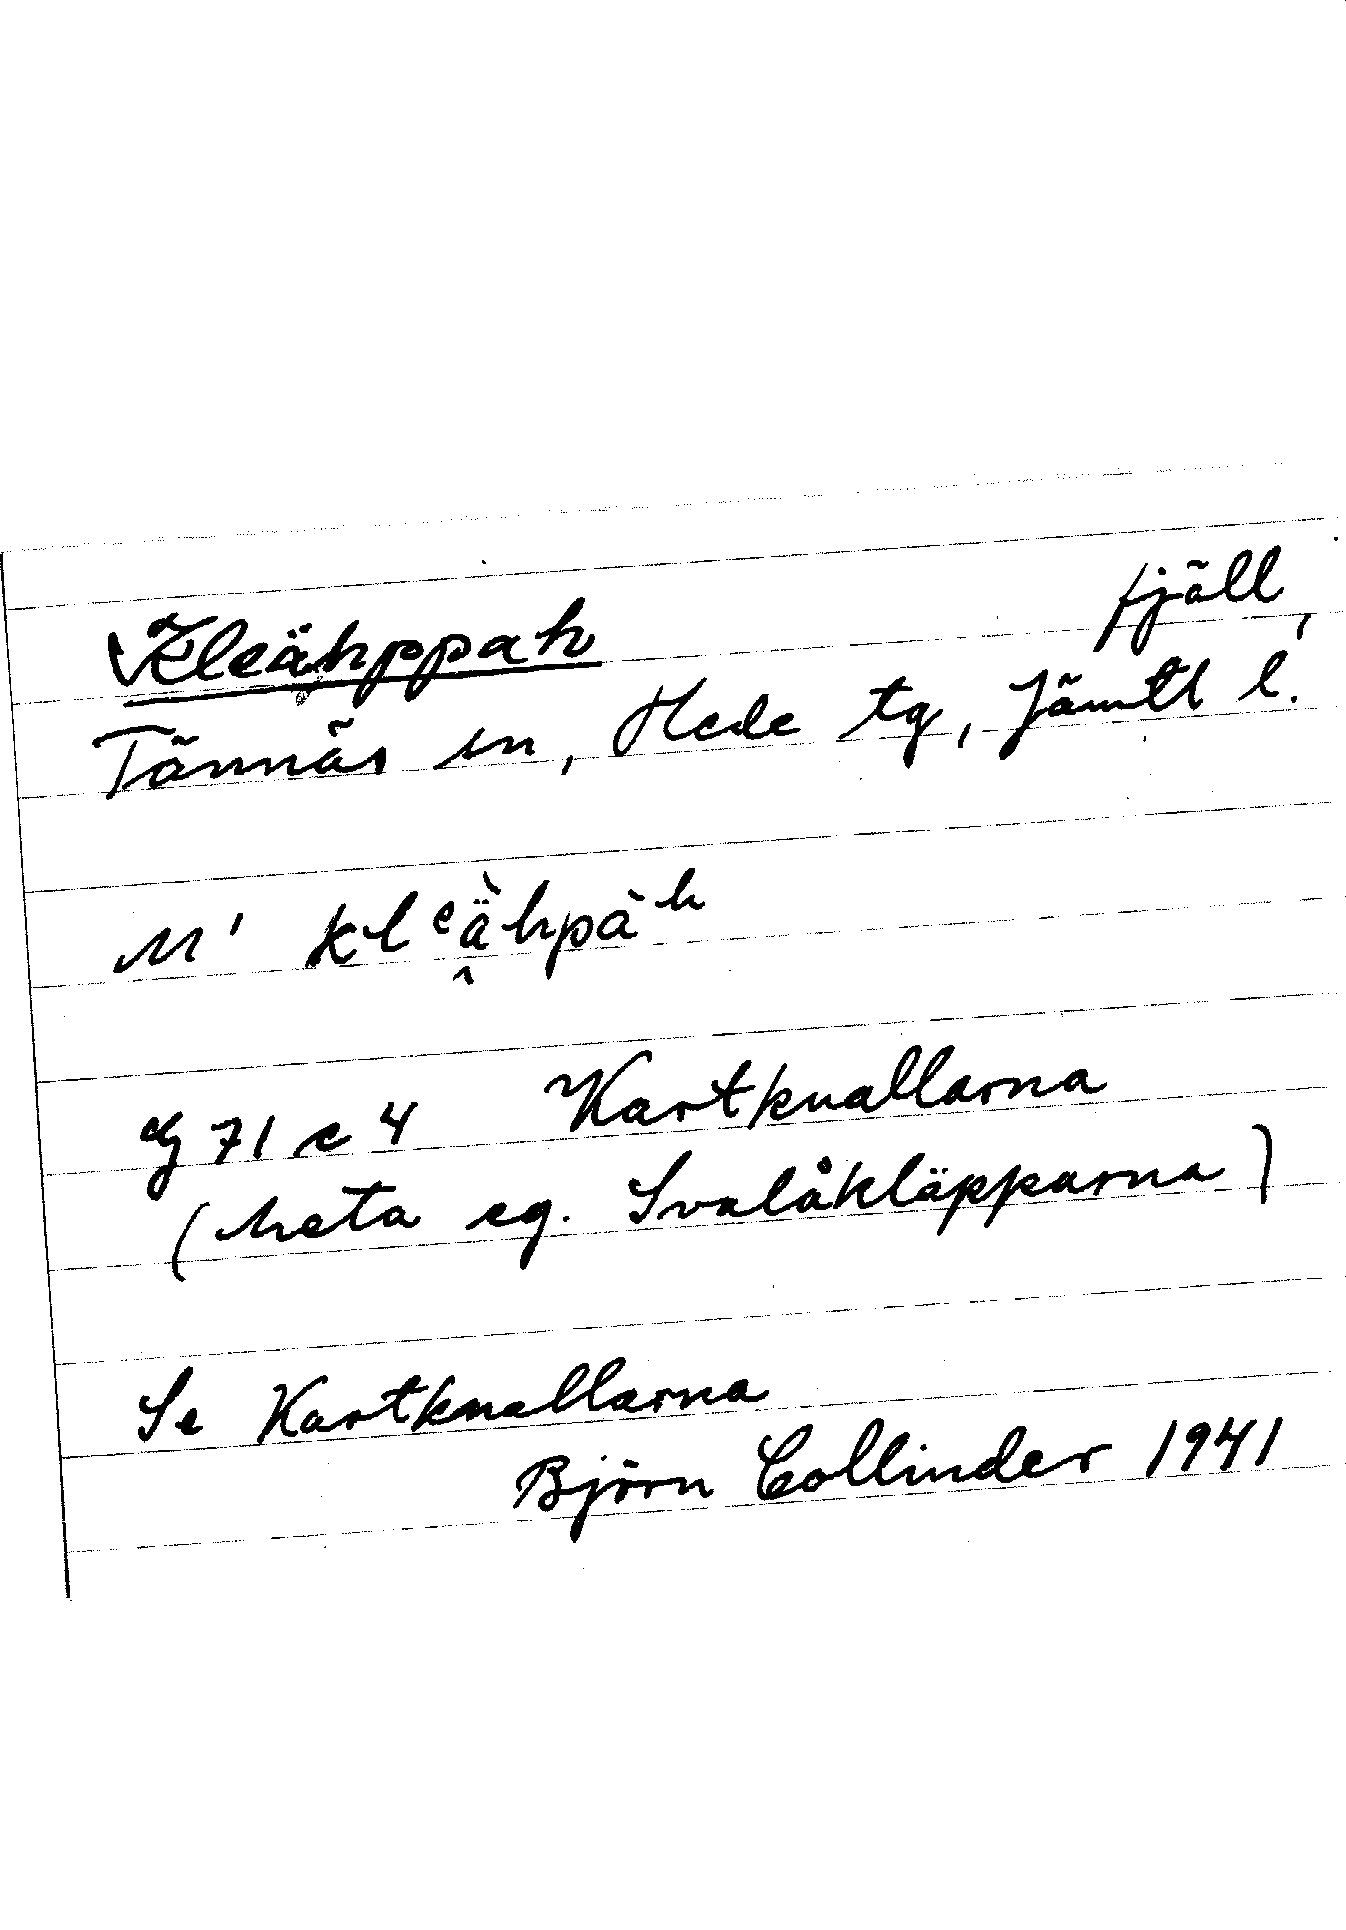 Kleähppah fjäll,
Tännäs sn, Hede tg, Jämtl l.
M' klᵉä̭̀hpàʰ
G 71 c 4 Kartknallarna
(heta eg. Svalåkläpparna)
Se Kartknallarna
Björn Collinder 1941